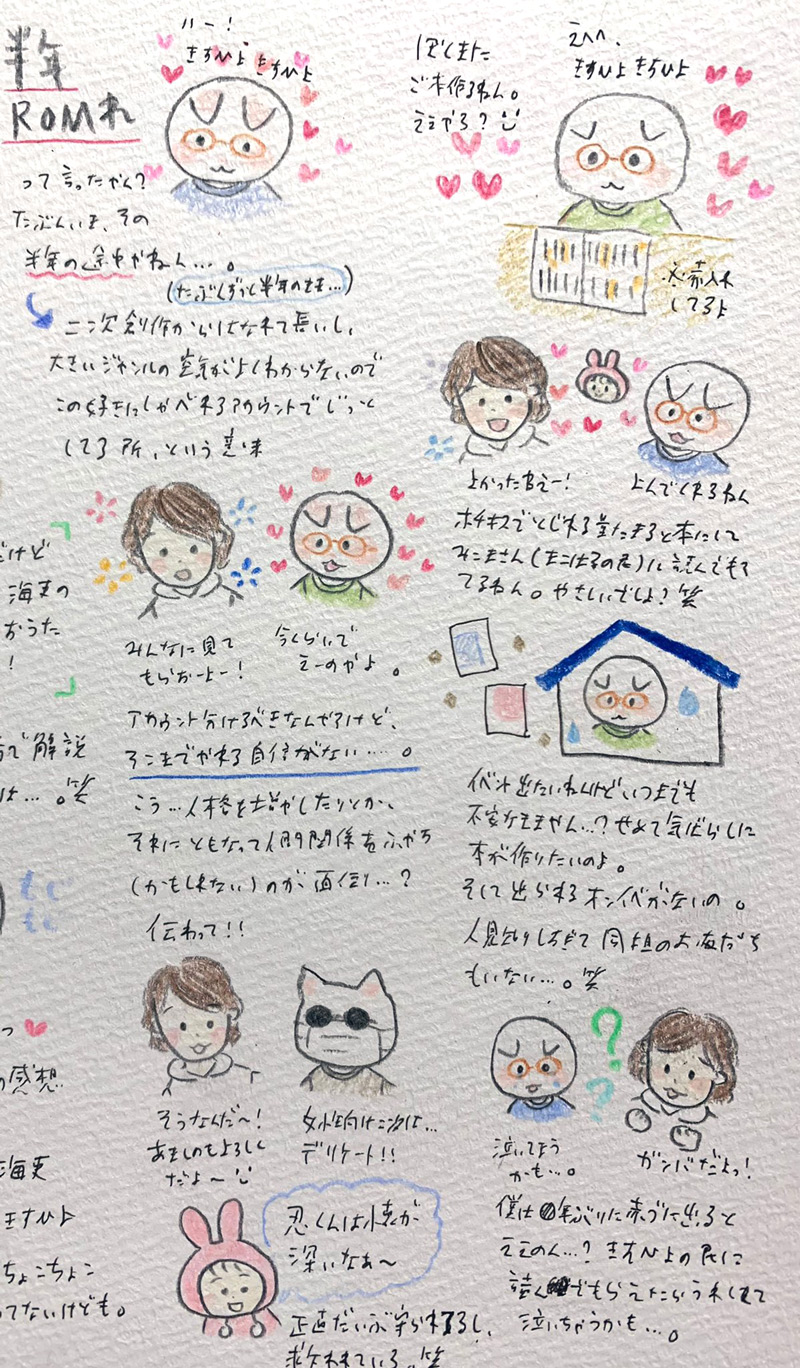 半年
ROMれ
って言ったやん?
たぶんいま、その
半年の途中やねん…。
(たぶんずっと半年のまま…)
二次創作からはなれて長いし、
大きいジャンルの空気がよくわからないので
この好きにしゃべれるアカウントでじっと
してる所、という意味
みんなに見て
もらおーよー!
今くらいで
えーのやよ。
アカウント分けるべきなんやろけど、
そこまでやれる自信がない……。
こう…人格を増やしたりとか、
それにともなって人間関係をふやす
(かもしれない)のが
伝わって!!
そうなんだ〜!
あきしのもよろしく
だよ〜
女性向け二次は…
デリケート!!
忍くんは懐が
深いなぁ〜
正直だいぶ守られてるし、
救われている。笑
ぼくまた
ご本作るねん。
ええやろ?
えへへ、
きすひよ きすひよ
※赤入れ
してるよ
よかったねえー!
よんでくれるねん
ホチキスでとじれる量たまると本にして
に読んでもろ
てるねん。やさしいでしょ?笑
イベント出たいねんけどいつまでも
不安なままやん…?せめて気ばらしに
本が作りたいのよ。
そして出られるオンイベがないの。
人見知りしすぎて同担のお友だち
もいない…。笑
泣いてまう
かも…。
ガンバだよっ!
僕は
年ぶりに赤ブーに出ると
ええのん…?きすひよの民に
読んでもらえたらうれしくて
泣いちゃうかも…。
だけど
海吏の
おうた
!
で解説
は…。笑
もじ
もじ
っ
の感想
海吏
きすひよ
ちょこちょこ
ってないけども。